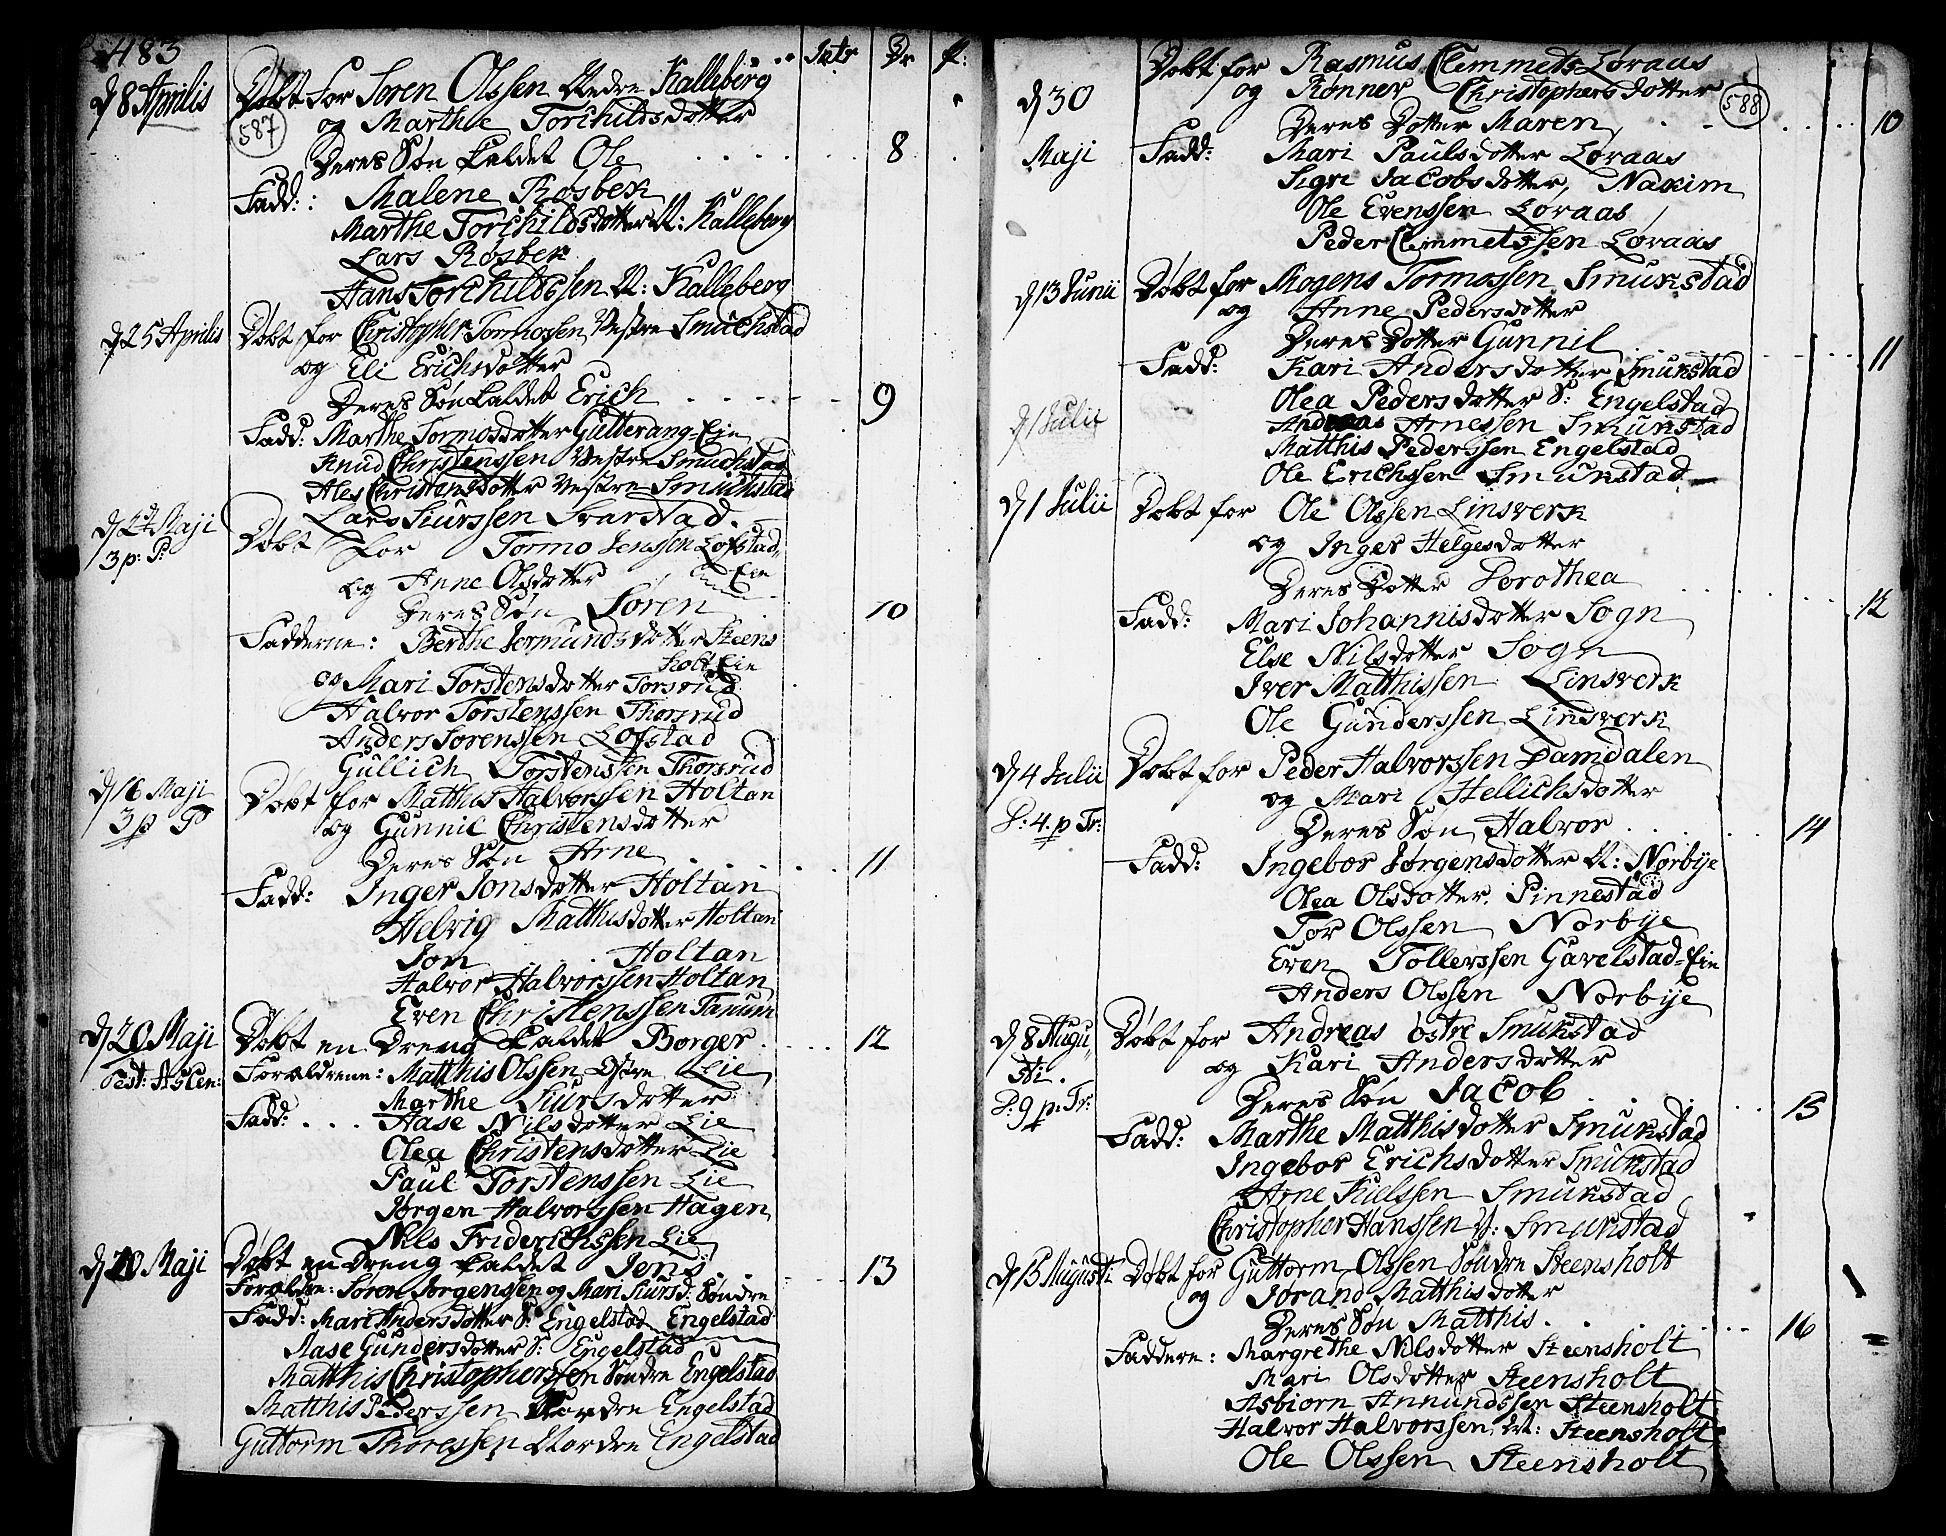 483
Intr Dr P:
d 8 Aprilis Døbt for Søren Olssen Nedre Kalleberg
587 og Marthe Torchildsdotter
Deres Søn kaldet Ole 8
Fadd: Malene Røsbek
Marthe Torchildsdotter N: Kalleberg
Lars Røsbek
Hans Torchildssen N: Kalleberg
d 25 Aprilis Døbt for Christopher Tormossen Vestre Smuchstad
og Eli Erichsdotter
Deres Søn kaldet Erich 9
Fadd: Marthe Tormosdotter Gutterang-Eie
Knud Christenssen Vestre Smuchstad
Ales Christensdotter Vestre Smuchstad
Lars Siurssen Svarstad.
d 2 Maji Døbt for Tormo Jenssen Lofstad
3 p: P: og Anne Olsdotter Eie
Deres Søn Søren 10
Fadderne: Berthe Jermundsdotter Steens
holt Eie
og Mari Torstensdotter Torsrud
Halvor Torstenssen Thorsrud
Anders Sorenssen Lofstad
Gullich Torstenssen Thorsrud
d 16 Maji Døbt for Mathis Halvorssen Holtan
3 p P og Gunnil Christensdotter
Deres Søn Arne 11
Fadd: Inger Jonsdotter Holtan
Helvig Matthisdotter Holtan
Jon Holtan
Halvor Halvorssen Holtan
Even Christenssen Fanum
d 20 Maji Døbt en Dreng kaldet Borger 12
Fest: Ascen: Forældrene: Matthis Olssen Østre Lie
Marthe Siursdotter
Fadd: Aase Nilsdotter Lie
Olea Christensdotter Lie
Paul Torstenssen Lie
Jørgen Halvorssen Hagen
Nils Friderichssen Lie
d 20 Maji Døbt en Dreng kaldet Jens 13
Forældre: Søren Jørgenssen og Mari Siursd: Søndre
Fadd: Mari Andersdotter S: Engelstad Engelstad
Aase Gundersdotter S: Engelstad
Matthis Christopherssen Søndre Engelstad
Matthis Pederssen Nordre Engelstad
Guttorm Thoressen Nordre Engelstad
Døbt for Rasmus Clemmets Løraas
d 30 og Rønner Christophersdotter 588
Deres Dotter Maren 10
Maji Fadd: Mari Paulsdotter Løraas
Sigri Jacobsdotter Nakim
Ole Evenssen Løraas
Peder Clemmetssen Løraas
d 13 Junii Døbt for Mogens Tormossen Smukstad
og Anne Pedersdotter
Deres Dotter Gunnil 11
Fadd: Kari Andersdotter Smukstad
Olea Pedersdotter S: Engelstad
d 1 Julii Andreas Arnessen Smukstad
Matthis Pederssen Engelstad
Ole Erichssen Smukstad
d 1 Julii Døbt for Ole Olssen Linsverk
og Inger Helgesdotter
Deres Dotter Dorothea 12
Fadd: Mari Johannisdotter Sogn
Else Nilsdotter Sogn
Iver Matthissen Linsverk
Ole Gunderssen Linsverk
d 4 Julii Døbt for Peder Halvorssen Damdalen
og Mari Hellichsdotter
D: 4. p Tr: Deres Søn Halvor 14
Fadd: Ingebor Jørgensdotter N: Norbye
Olea Olsdotter Pinnestad
Tor Olssen Norbye
Even Tollerssen Gavelstad-Eie
Anders Olssen Norbye
d 8 Augu Døbt for Andreas Østre Smukstad
sti. og Kari Andersdotter
D: 9 p. Tr: Deres Søn Jacob 15
Fadd: Marthe Matthisdotter Smukstad
Ingebor Erichsdotter Smukstad
Arne Kielssen Smukstad
Christopher Hanssen V: Smukstad
d 15 Augusti Døbt for Guttorm Olssen Søndre Steensholt
og Jorand Matthisdotter
Deres Søn Matthis 16
Faddere: Margrethe Nilsdotter Steensholt
Mari Olsdotter Steensholt
Asbiorn Annundssen Steensholt
Halvor Halvorssen N: Steensholt
Ole Olssen Steensholt